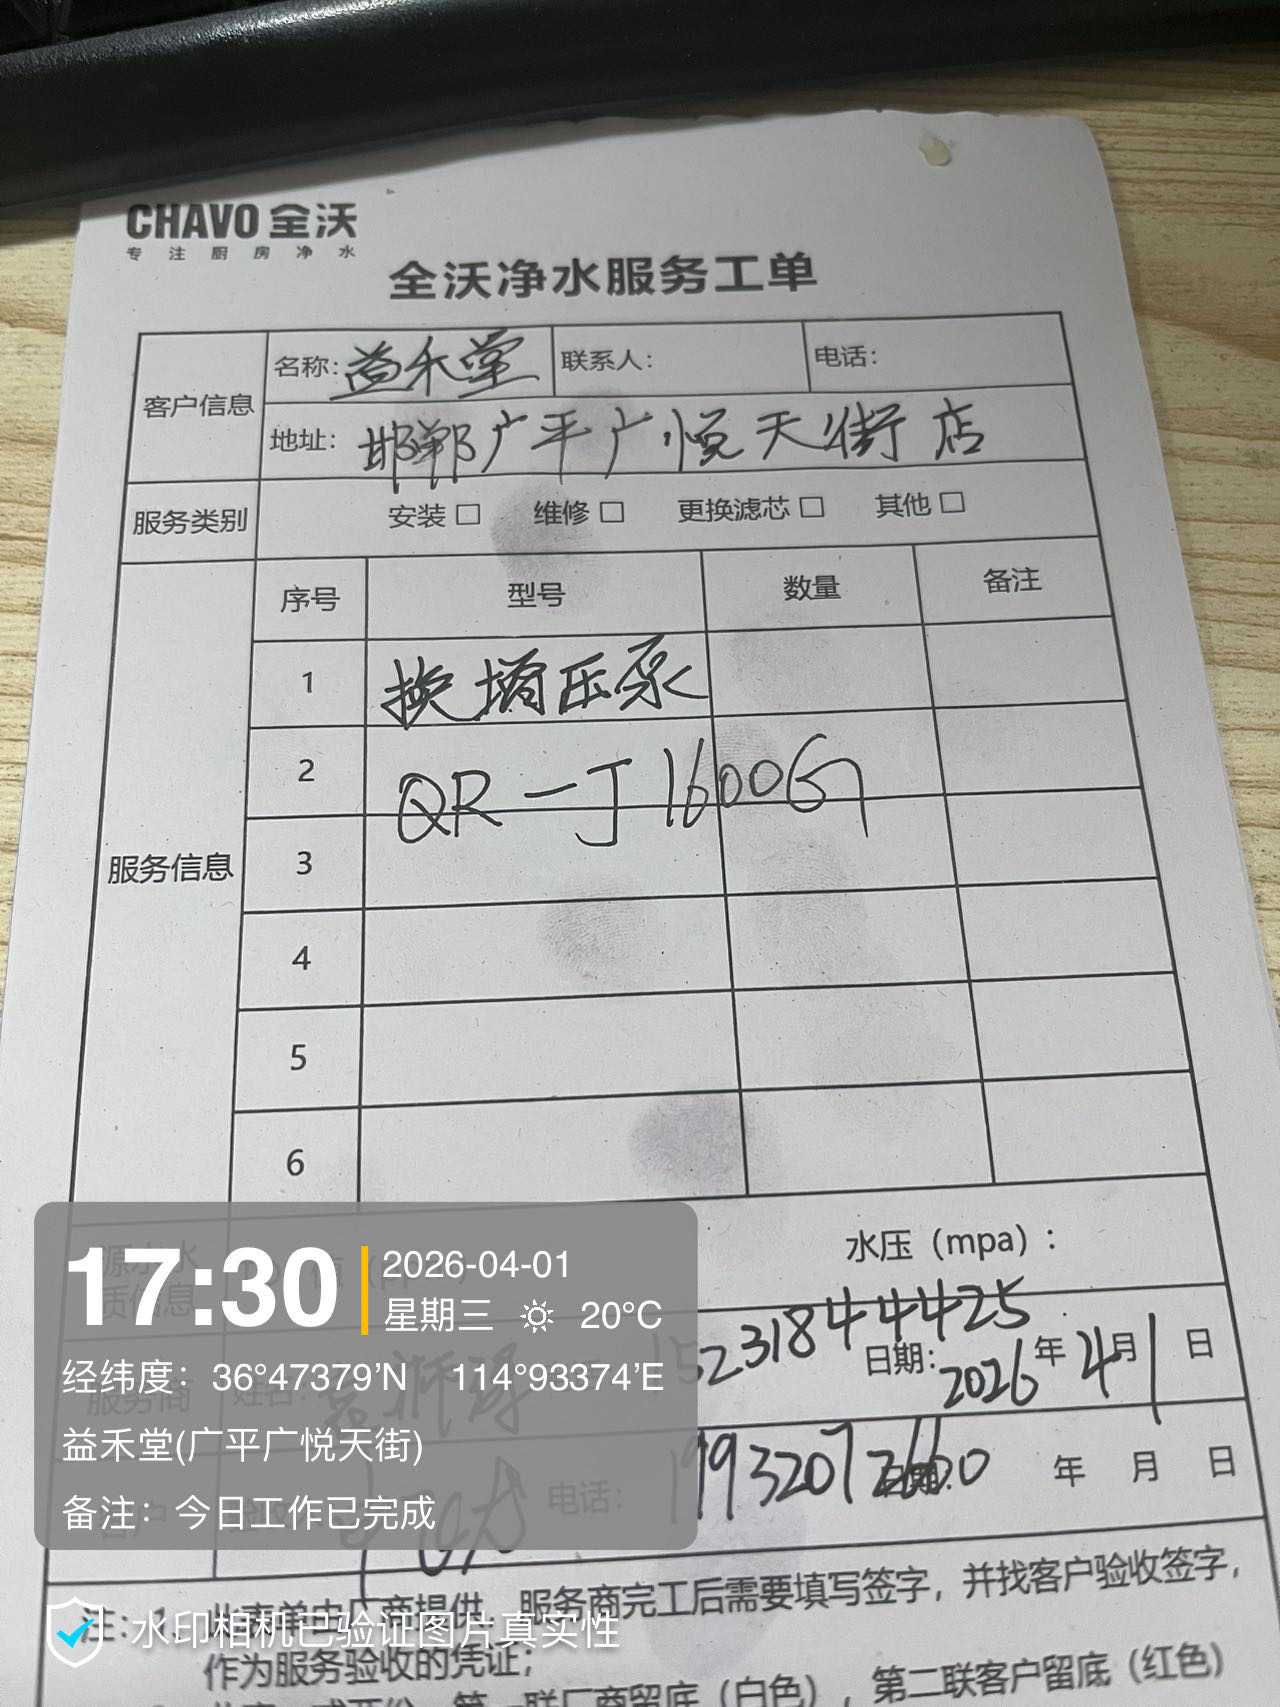 CHAVO 全沃
专注厨房净水
全沃净水服务工单
客户信息 名称：益禾堂 联系人： 电话：
地址：邯郸广平广悦天街店
服务类别 安装□ 维修□ 更换滤芯□ 其他□
服务信息 序号 型号 数量 备注
1 换增压泵
2 QR-J1600G
3
4
5
6
源水水质信息 水压（mpa）：
服务商 姓名： 15231844425 日期：2026年4月1日
客户 电话：19932072660 日期： 年 月 日
注：1、此表单由厂商提供，服务商完工后需要填写签字，并找客户验收签字，
作为服务验收的凭证；
第一联厂商留底（白色），第二联客户留底（红色）
17:30 2026-04-01
星期三 20°C
经纬度：36°47379'N 114°93374'E
益禾堂(广平广悦天街)
备注：今日工作已完成
水印相机已验证图片真实性